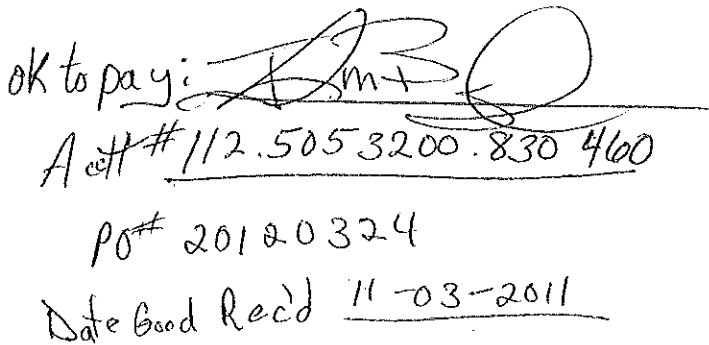 oK to pay:
Acct# 112.5053200.830 460
PO# 20120324
Date Good Rec'd 11-03-2011